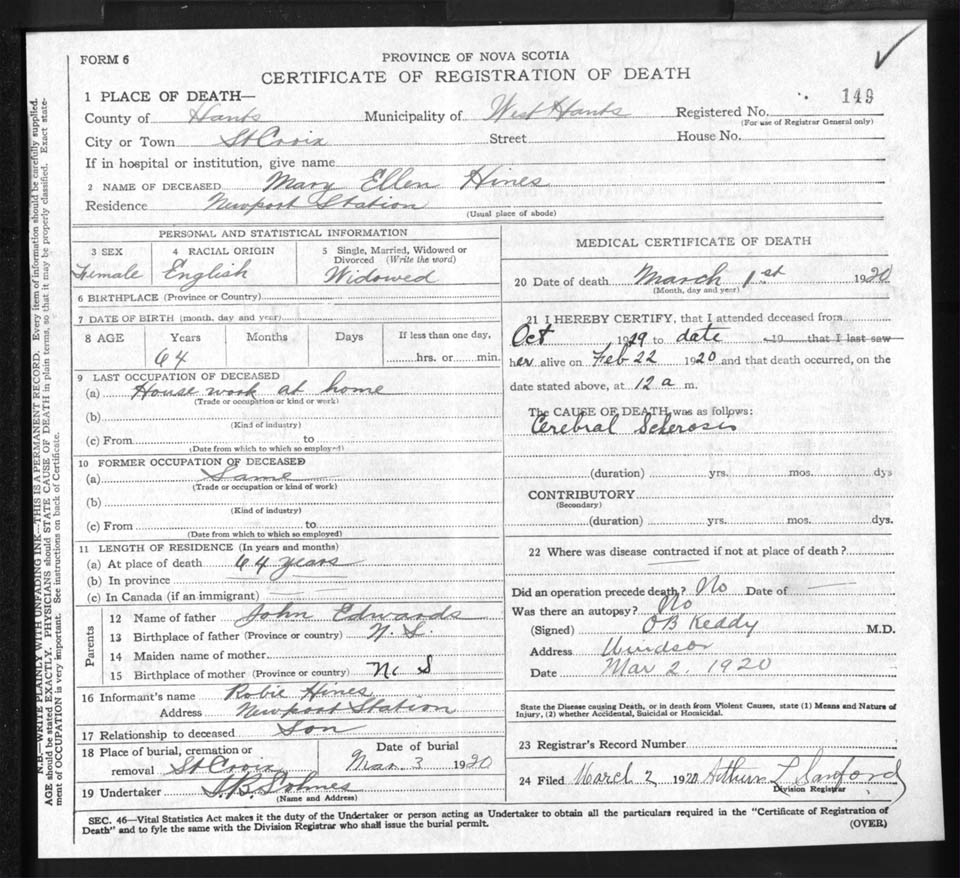 FORM 6
PROVINCE OF NOVA SCOTIA
CERTIFICATE OF REGISTRATION OF DEATH
149
1 PLACE OF DEATH—
County of Hants Municipality of West Hants Registered No.
(For use of Registrar General only)
City or Town St Croix Street House No.
If in hospital or institution, give name
2 NAME OF DECEASED Mary Ellen Hines
Residence Newport Station
(Usual place of abode)
PERSONAL AND STATISTICAL INFORMATION
3 SEX 4 RACIAL ORIGIN 5 Single, Married, Widowed or Divorced (Write the word)
Female English Widowed
6 BIRTHPLACE (Province or Country)
7 DATE OF BIRTH (month, day and year)
8 AGE Years Months Days If less than one day,
64 hrs. or min.
9 LAST OCCUPATION OF DECEASED
(a) House work at home
(Trade or occupation or kind or work)
(b)
(Kind of industry)
(c) From to
(Date from which to which so employed)
10 FORMER OCCUPATION OF DECEASED
(a) Same
(Trade or occupation or kind of work)
(b)
(Kind of industry)
(c) From to
(Date from which to which so employed)
11 LENGTH OF RESIDENCE (In years and months)
(a) At place of death 64 years
(b) In province
(c) In Canada (if an immigrant)
Parents
12 Name of father John Edwards
13 Birthplace of father (Province or country) N. S.
14 Maiden name of mother
15 Birthplace of mother (Province or country) N. S
16 Informant's name Robie Hines
Address Newport Station
17 Relationship to deceased Son
18 Place of burial, cremation or removal St Croix
Date of burial
Mar 3 1920
19 Undertaker
(Name and Address)
MEDICAL CERTIFICATE OF DEATH
20 Date of death March 1st 1920
(Month, day and year)
21 I HEREBY CERTIFY, that I attended deceased from
Oct 1919 to date 19 that I last saw
her alive on Feb 22 1920 and that death occurred, on the
date stated above, at 12 a m.
The CAUSE OF DEATH was as follows:
Cerebral Sclerosis
(duration) yrs. mos. dys
CONTRIBUTORY
(Secondary)
(duration) yrs. mos. dys.
22 Where was disease contracted if not at place of death?
Did an operation precede death? No Date of
Was there an autopsy? No
(Signed) O B Keddy M.D.
Address Windsor
Date Mar 2, 1920
State the Disease causing Death, or in death from Violent Causes, state (1) Means and Nature of
Injury, (2) whether Accidental, Suicidal or Homicidal.
23 Registrar's Record Number
24 Filed March 2 1920 Arthur L Sanford
Division Registrar
SEC. 46—Vital Statistics Act makes it the duty of the Undertaker or person acting as Undertaker to obtain all the particulars required in the "Certificate of Registration of
Death" and to fyle the same with the Division Registrar who shall issue the burial permit.
(OVER)
N.B.—WRITE PLAINLY WITH UNFADING INK—THIS IS A PERMANENT RECORD. Every item of information should be carefully supplied.
AGE should be stated EXACTLY. PHYSICIANS should STATE CAUSE OF DEATH in plain terms, so that it may be properly classified. Exact state-
ment of OCCUPATION is very important. See instructions on back of Certificate.